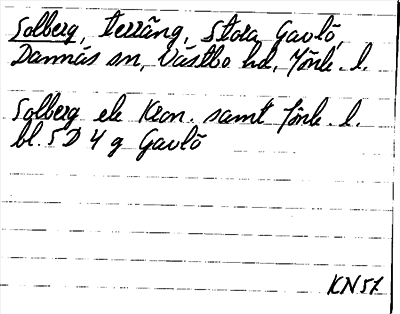 Solberg, terräng, Stora Gavlö,
Dannäs sn, Västbo hd, Jönk. l.
Solberg ek Kron. samt Jönk. l.
bl. 5 D 4 g Gavlö
KN 57